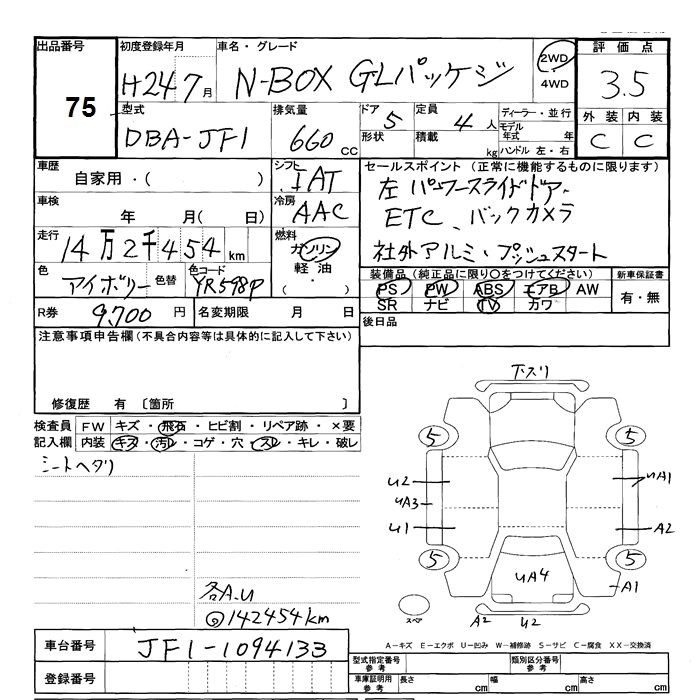 出品番号 初度登録年月 車名・グレード 評価点
75 H24 7月 N-BOX GLパッケージ 2WD 4WD 3.5
型式 排気量 ドア 形状 定員 積載 ディーラー・並行 外装 内装
DBA-JF1 660 CC 5 4 人 kg モデル年式 年 ハンドル 左・右 C C
車歴 自家用・( ) シフト IAT セールスポイント (正常に機能するものに限ります)
左 パワースライドドア
車検 年 月( 日) 冷房 AAC ETC、バックカメラ
走行 14万2千454km 燃料 ガソリン 軽油 ・ ( ) 社外アルミ・プッシュスタート
色 アイボリー 色替 色コード YR598P 装備品 (純正品に限り○をつけてください) 新車保証書
PS PW ABS エアB AW 有・無
SR ナビ TV カワ
R券 9,700 円 名変期限 月 日 後日品
注意事項申告欄(不具合内容等は具体的に記入して下さい)
修復歴 有 〔箇所 〕
検査員 FW キズ・飛石・ヒビ割・リペア跡・×要
記入欄 内装 キズ・汚レ・コゲ・穴・スレ・キレ・破レ
シートヘタリ
各A.U
◎142454km
下スリ
5 5
U2 UA1
UA3
U1 A2
5 5
UA4 A1
スペア A2 U2
A-キズ E-エクボ U-凹み W-補修跡 S-サビ C-腐食 XX-交換済
車台番号 JF1-1094133 型式指定番号 参考 類別区分番号 参考
登録番号 車庫証明用 参考 長さ cm 幅 cm 高さ cm